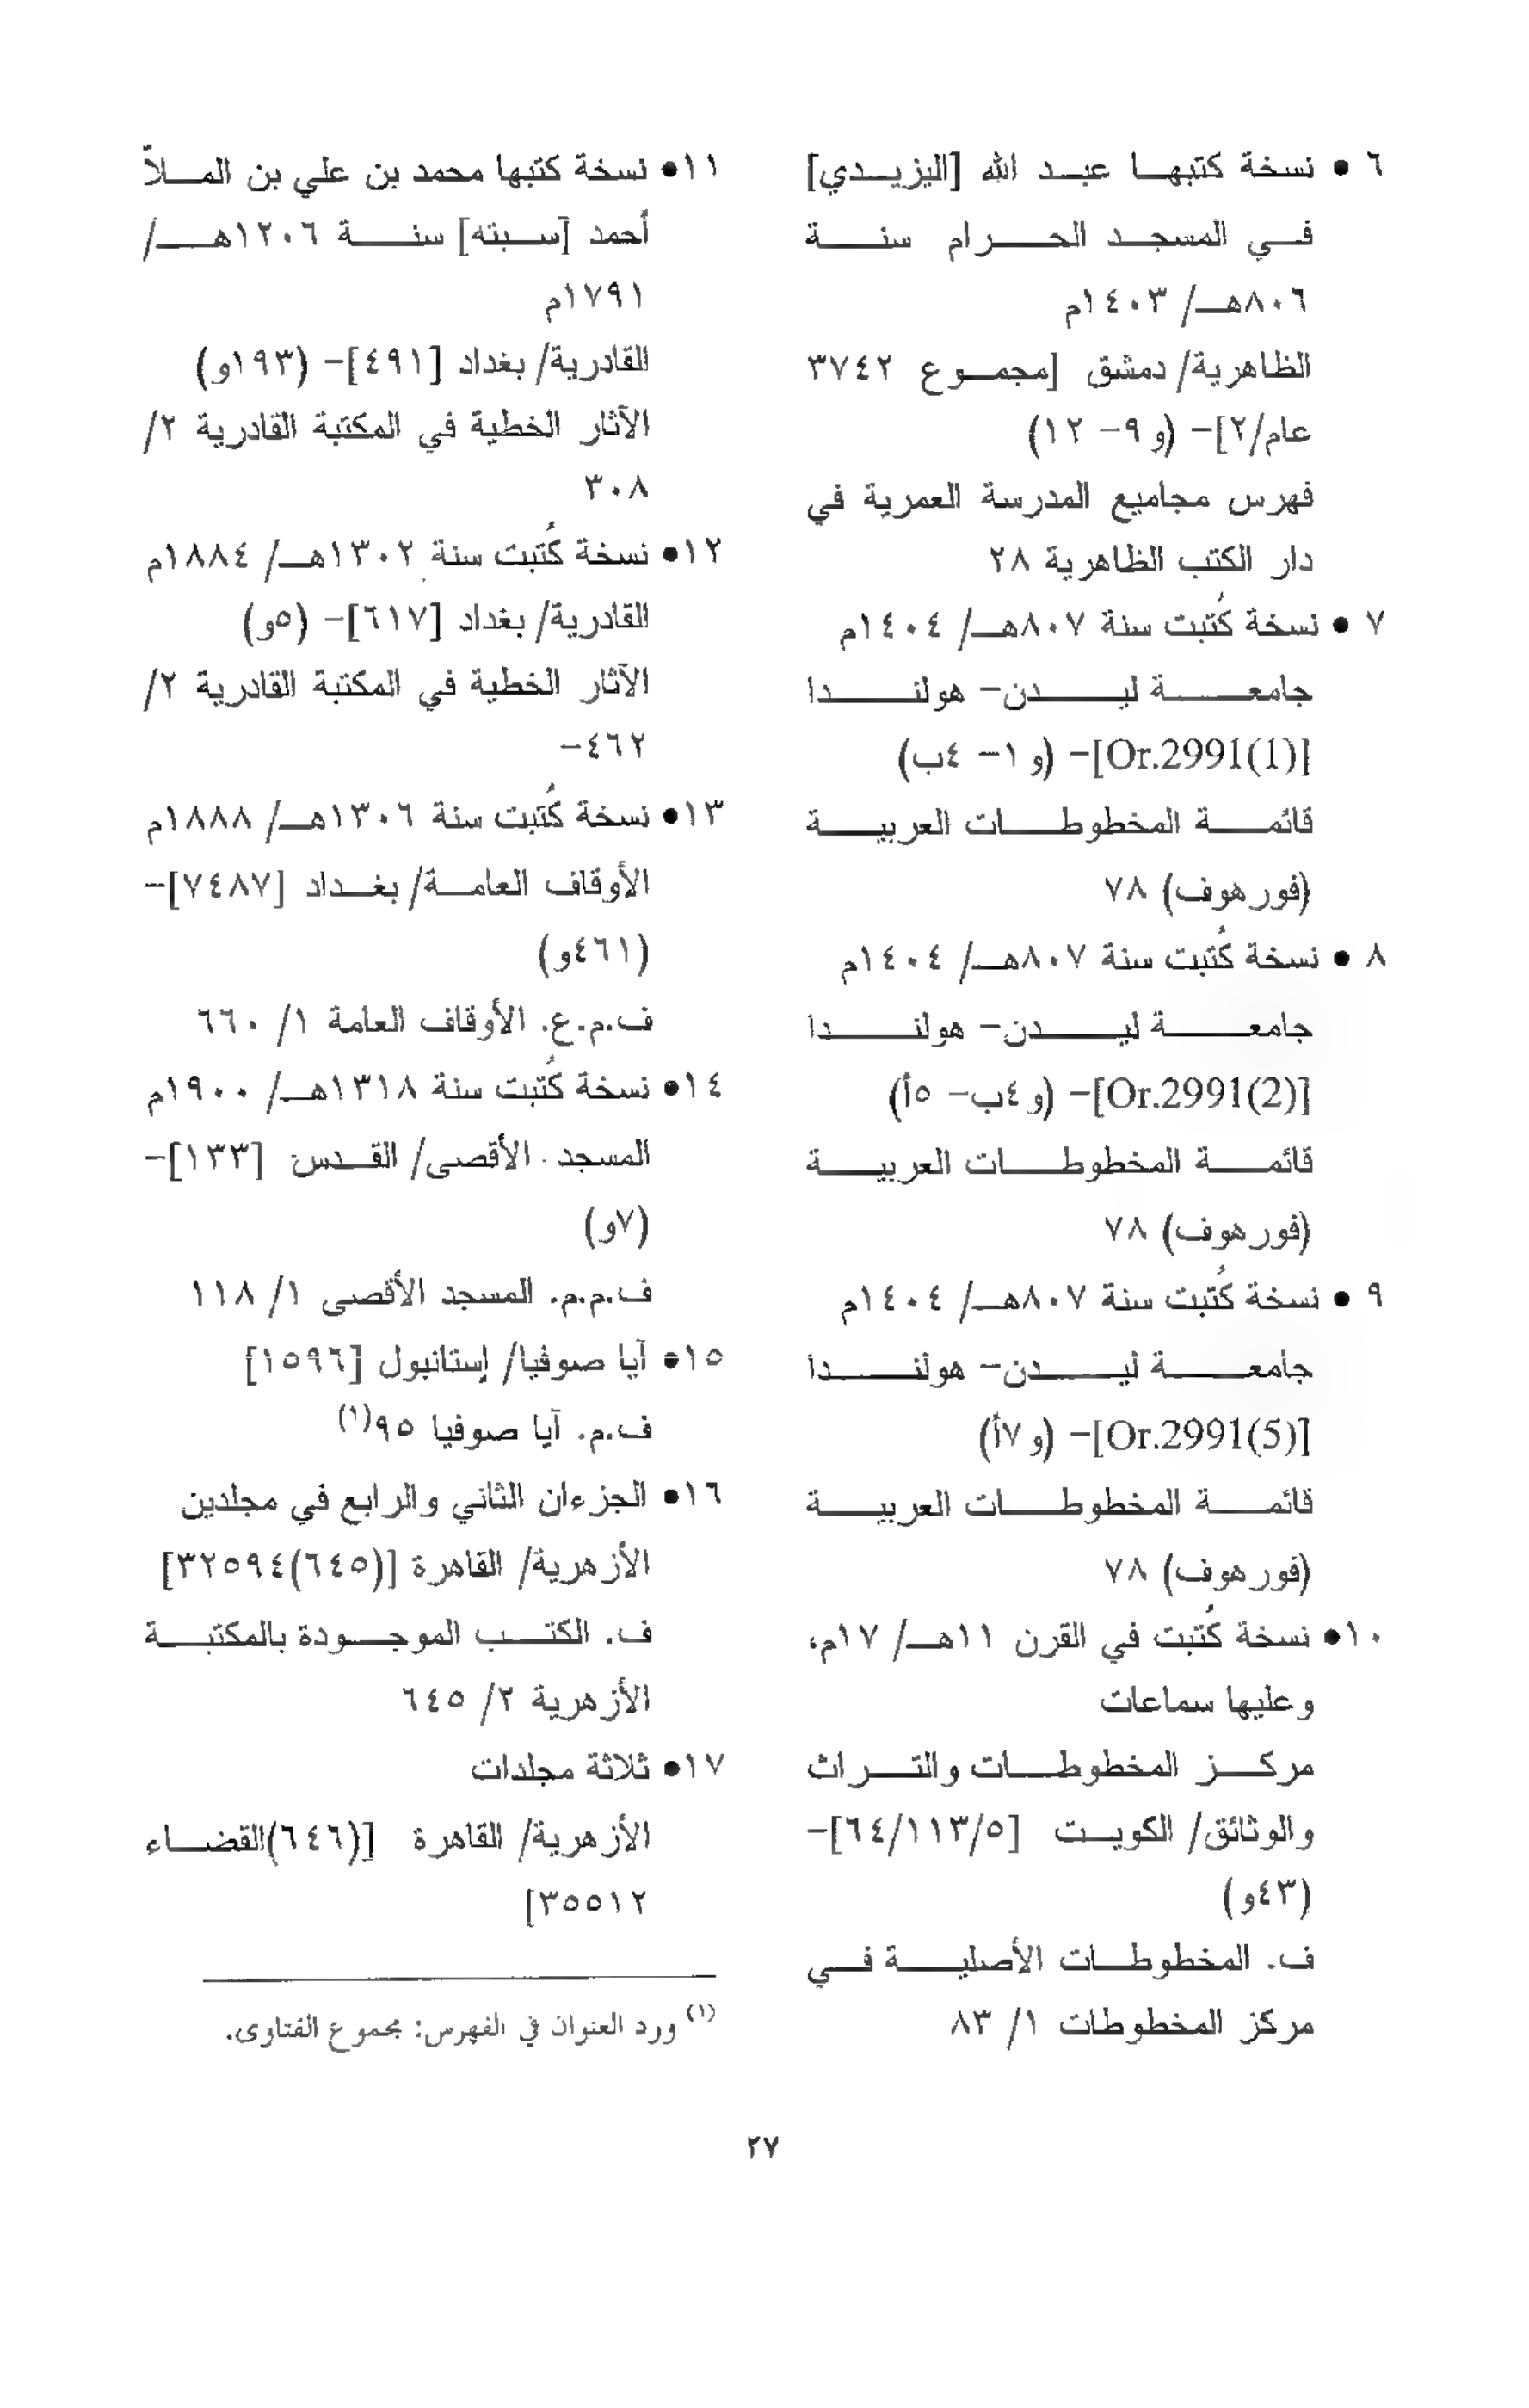 ٦ • نسخة كتبها عبد الله [اليزيدي]
في المسجد الحرام سنة
٨٠٦هـ/ ١٤٠٣م
الظاهرية/ دمشق [مجموع ٣٧٤٢
عام/٢]- (و ٩- ١٢)
فهرس مجاميع المدرسة العمرية في
دار الكتب الظاهرية ٢٨
٧ • نسخة كُتبت سنة ٨٠٧هـ/ ١٤٠٤م
جامعة ليدن- هولندا
[Or.2991(1)]- (و ١- ٤ب)
قائمة المخطوطات العربية
(فورهوف) ٧٨
٨ • نسخة كُتبت سنة ٨٠٧هـ/ ١٤٠٤م
جامعة ليدن- هولندا
[Or.2991(2)]- (و ٤ب- ٥أ)
قائمة المخطوطات العربية
(فورهوف) ٧٨
٩ • نسخة كُتبت سنة ٨٠٧هـ/ ١٤٠٤م
جامعة ليدن- هولندا
[Or.2991(5)]- (و ٧أ)
قائمة المخطوطات العربية
(فورهوف) ٧٨
١٠• نسخة كُتبت في القرن ١١هـ/ ١٧م،
وعليها سماعات
مركز المخطوطات والتراث
والوثائق/ الكويت [٦٤/١١٣/٥]-
(٤٣و)
ف. المخطوطات الأصلية في
مركز المخطوطات ١/ ٨٣
١١• نسخة كتبها محمد بن علي بن الملاّ
أحمد [سبته] سنة ١٢٠٦هـ/
١٧٩١م
القادرية/ بغداد [٤٩١]- (١٩٣و)
الآثار الخطية في المكتبة القادرية ٢/
٣٠٨
١٢• نسخة كُتبت سنة ١٣٠٢هـ/ ١٨٨٤م
القادرية/ بغداد [٦١٧]- (٥و)
الآثار الخطية في المكتبة القادرية ٢/
٤٦٢-
١٣• نسخة كُتبت سنة ١٣٠٦هـ/ ١٨٨٨م
الأوقاف العامة/ بغداد [٧٤٨٧]-
(٤٦١و)
ف.م.ع. الأوقاف العامة ١/ ٦٦٠
١٤• نسخة كُتبت سنة ١٣١٨هـ/ ١٩٠٠م
المسجد الأقصى/ القدس [١٣٣]-
(٧و)
ف.م.م. المسجد الأقصى ١/ ١١٨
١٥• آيا صوفيا/ إستانبول [١٥٩٦]
ف.م. آيا صوفيا ٩٥(١)
١٦• الجزءان الثاني والرابع في مجلدين
الأزهرية/ القاهرة [(٦٤٥)٣٢٥٩٤]
ف. الكتب الموجودة بالمكتبة
الأزهرية ٢/ ٦٤٥
١٧• ثلاثة مجلدات
الأزهرية/ القاهرة [(٦٤٦)القضاء
٣٥٥١٢]
(١) ورد العنوان في الفهرس: مجموع الفتاوى.
٢٧